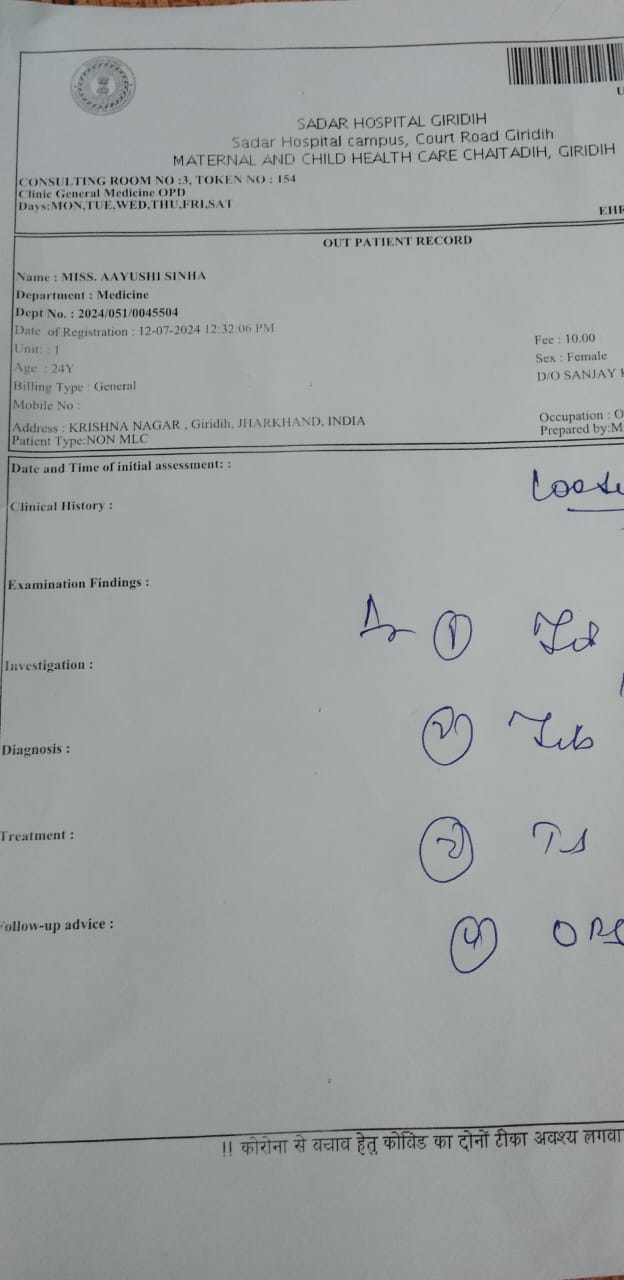 U
SADAR HOSPITAL GIRIDIH
Sadar Hospital campus, Court Road Giridih
MATERNAL AND CHILD HEALTH CARE CHAITADIH, GIRIDIH
CONSULTING ROOM NO :3, TOKEN NO : 154
Clinic General Medicine OPD
Days:MON,TUE,WED,THU,FRI,SAT
EHR
OUT PATIENT RECORD
Name : MISS. AAYUSHI SINHA
Department : Medicine
Dept No. : 2024/051/0045504
Date of Registration : 12-07-2024 12:32:06 PM
Unit: : 1
Fee : 10.00
Age : 24Y
Sex : Female
Billing Type : General
D/O SANJAY
Mobile No :
Address : KRISHNA NAGAR , Giridih, JHARKHAND, INDIA
Occupation : O
Patient Type:NON MLC
Prepared by:M
Date and Time of initial assessment: :
Loose
Clinical History :
Examination Findings :
1
Investigation :
2
Diagnosis :
3
Treatment :
4 ORS
Follow-up advice :
!! कोरोना से बचाव हेतु कोविड का दोनों टीका अवश्य लगवा